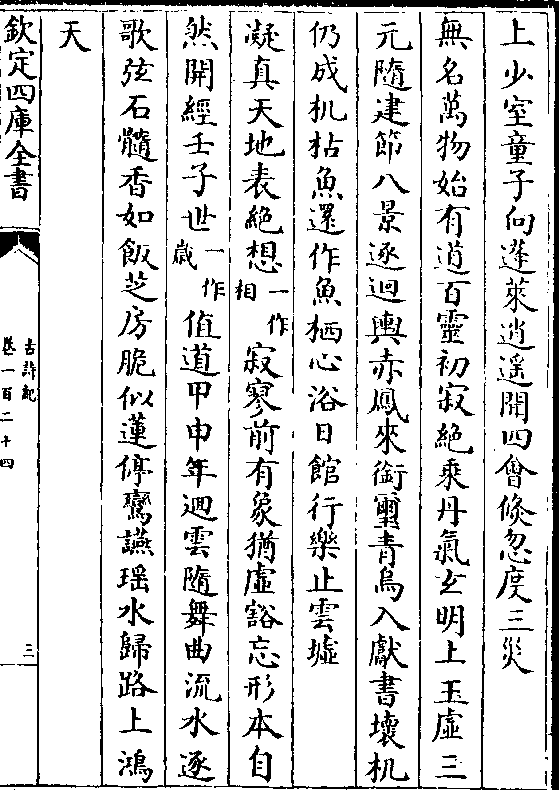 上少室童子向蓬萊逍遥開四會倐忽度三災
無名萬物始有道百靈初寂絶乘丹氣玄明上玉虛三
元隨建節八景逐迴輿赤鳳來銜璽青鳥入獻書壞机
仍成机枯魚還作魚栖心浴日館行樂止雲墟
凝真天地表絶想一作相寂寥前有象猶虛豁忘形本自
然開經壬子世一作歲值道甲申年迴雲隨舞曲流水逐
歌弦石髓香如飯芝房脆似蓮停鸞讌瑶水歸路上鴻
天
欽定四庫全書
古詩紀
卷一百二十四
三